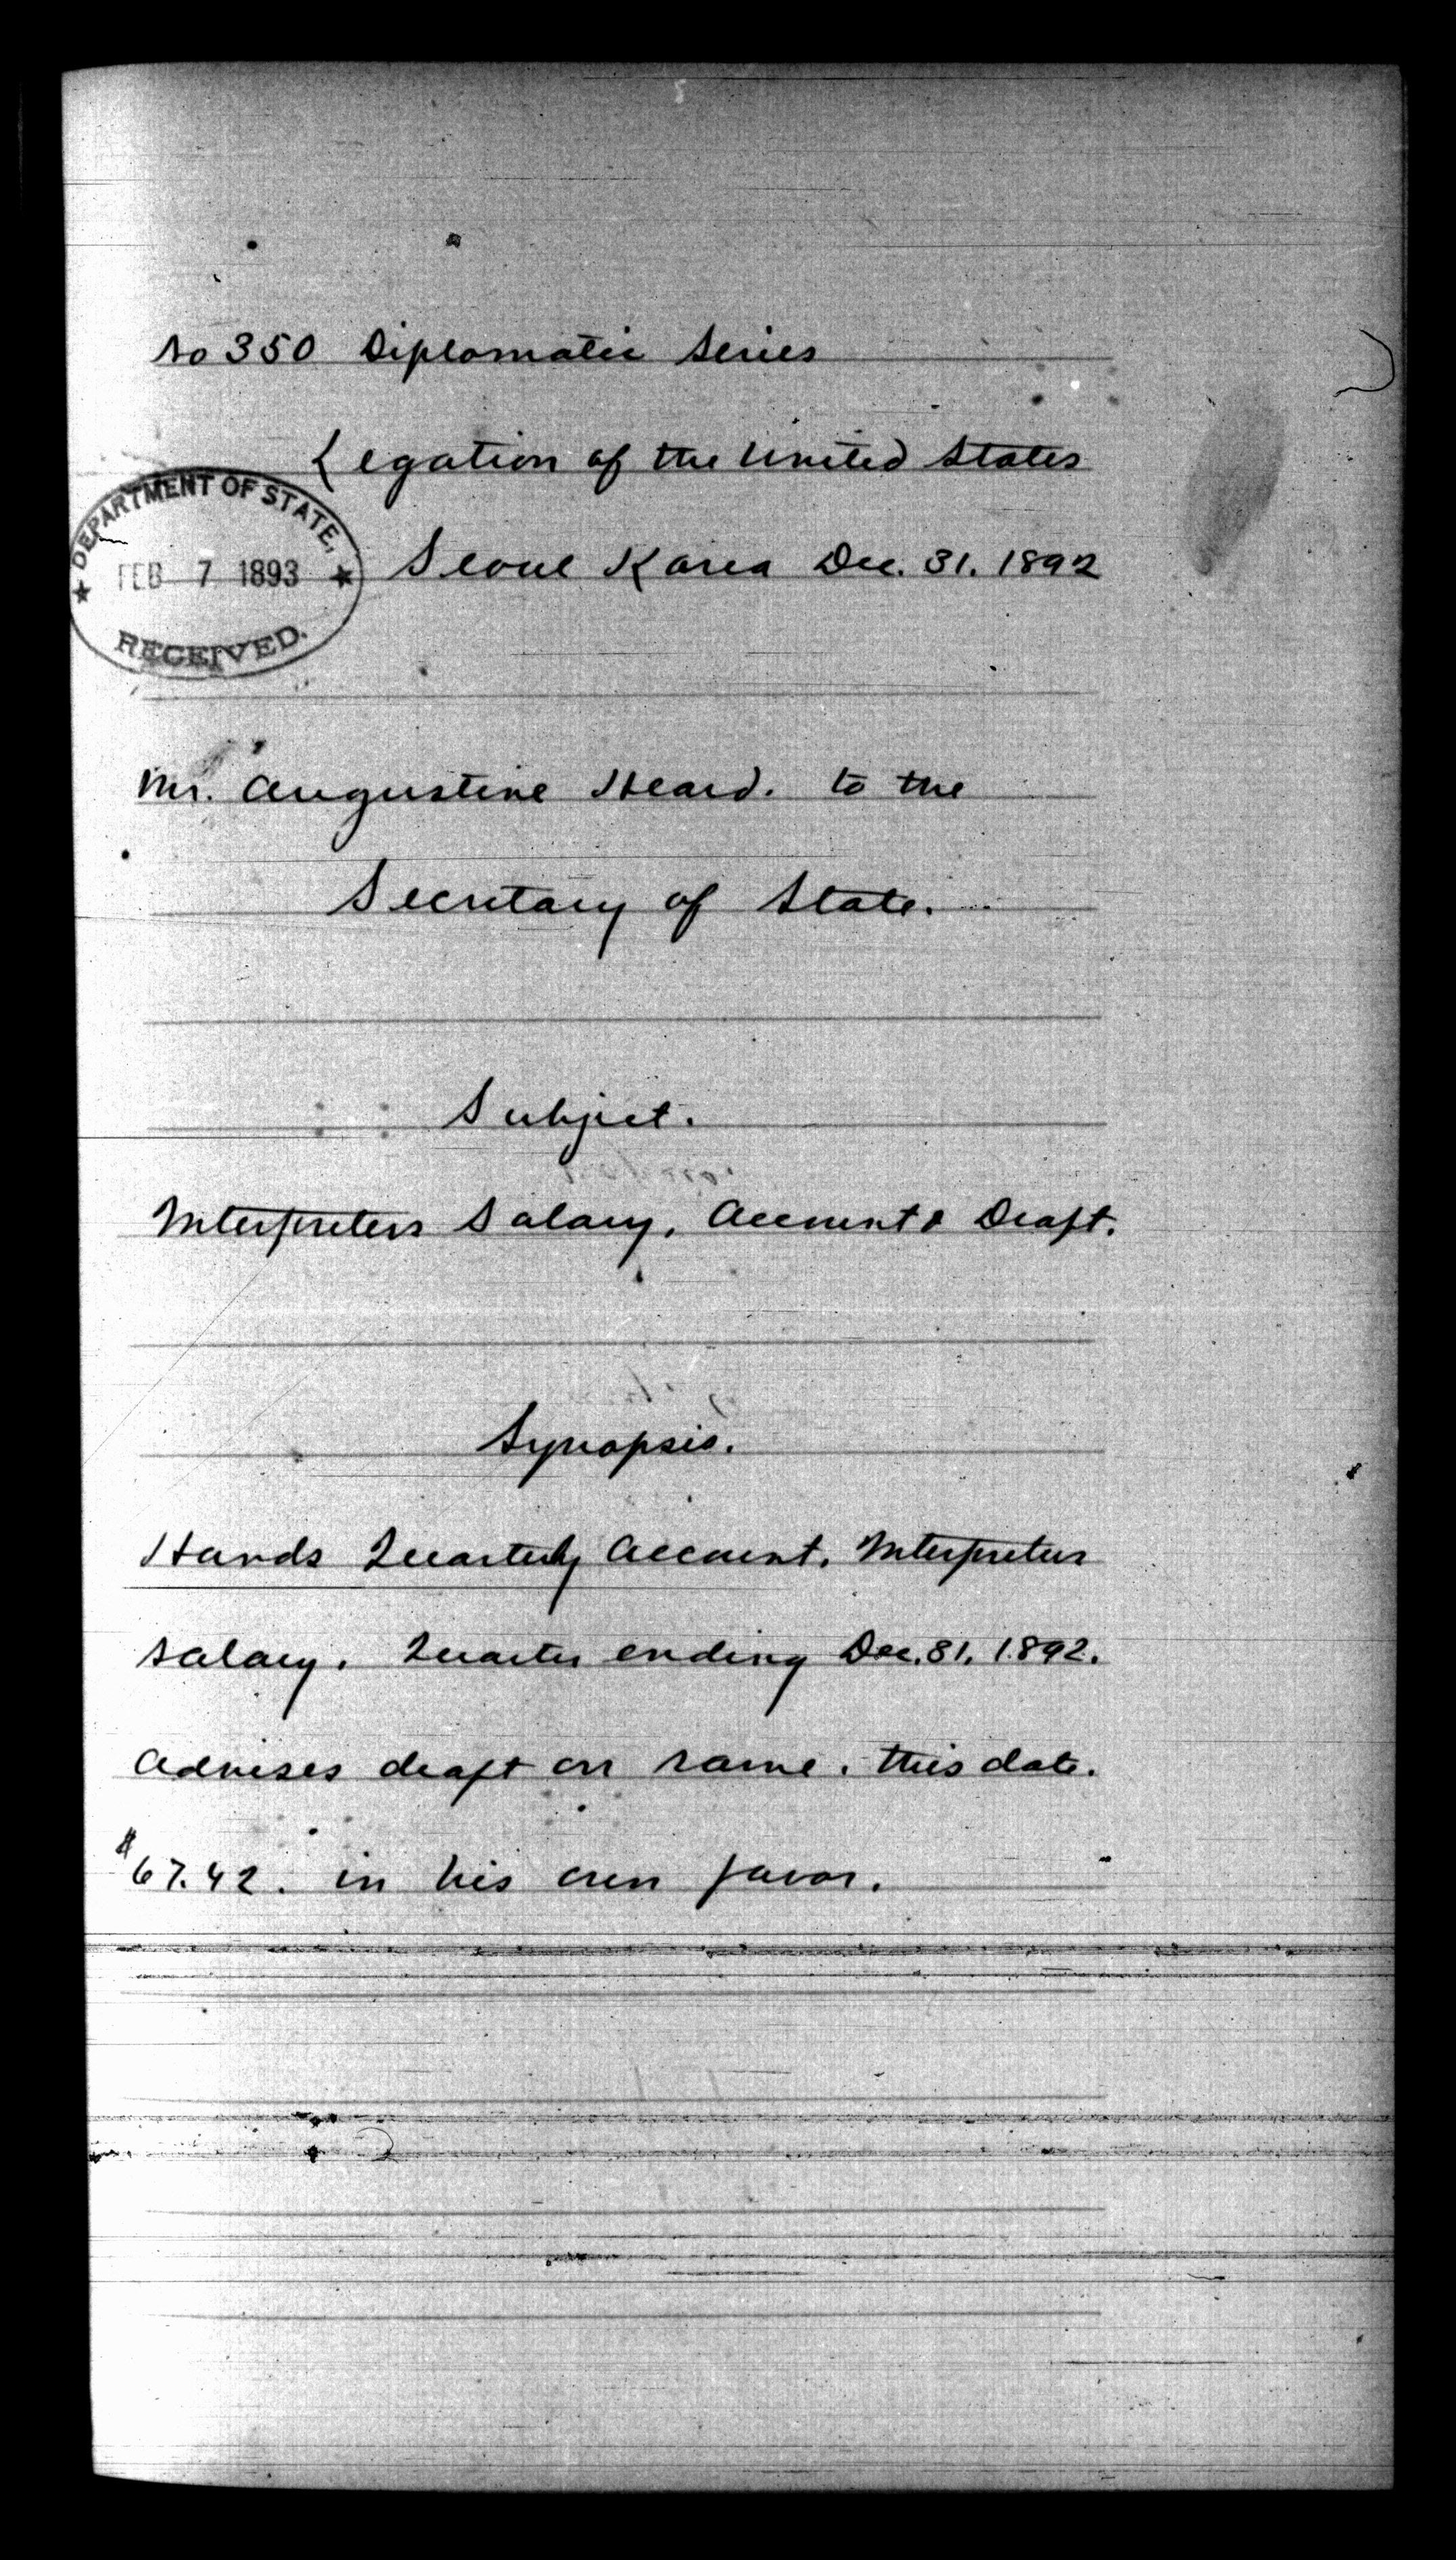 No 350 Diplomatic Series
Legation of the United States
DEPARTMENT OF STATE,
FEB 7 1893
RECEIVED.
Seoul Korea Dec. 31. 1892
Mr. Augustine Heard. to the
Secretary of State.
Subject.
Interpreters Salary, Account & Draft.
Synopsis.
Hands Quarterly Account. Interpreters
salary. Quarter ending Dec. 31. 1892.
Advises draft on same. this date.
$67.42. in his own favor.